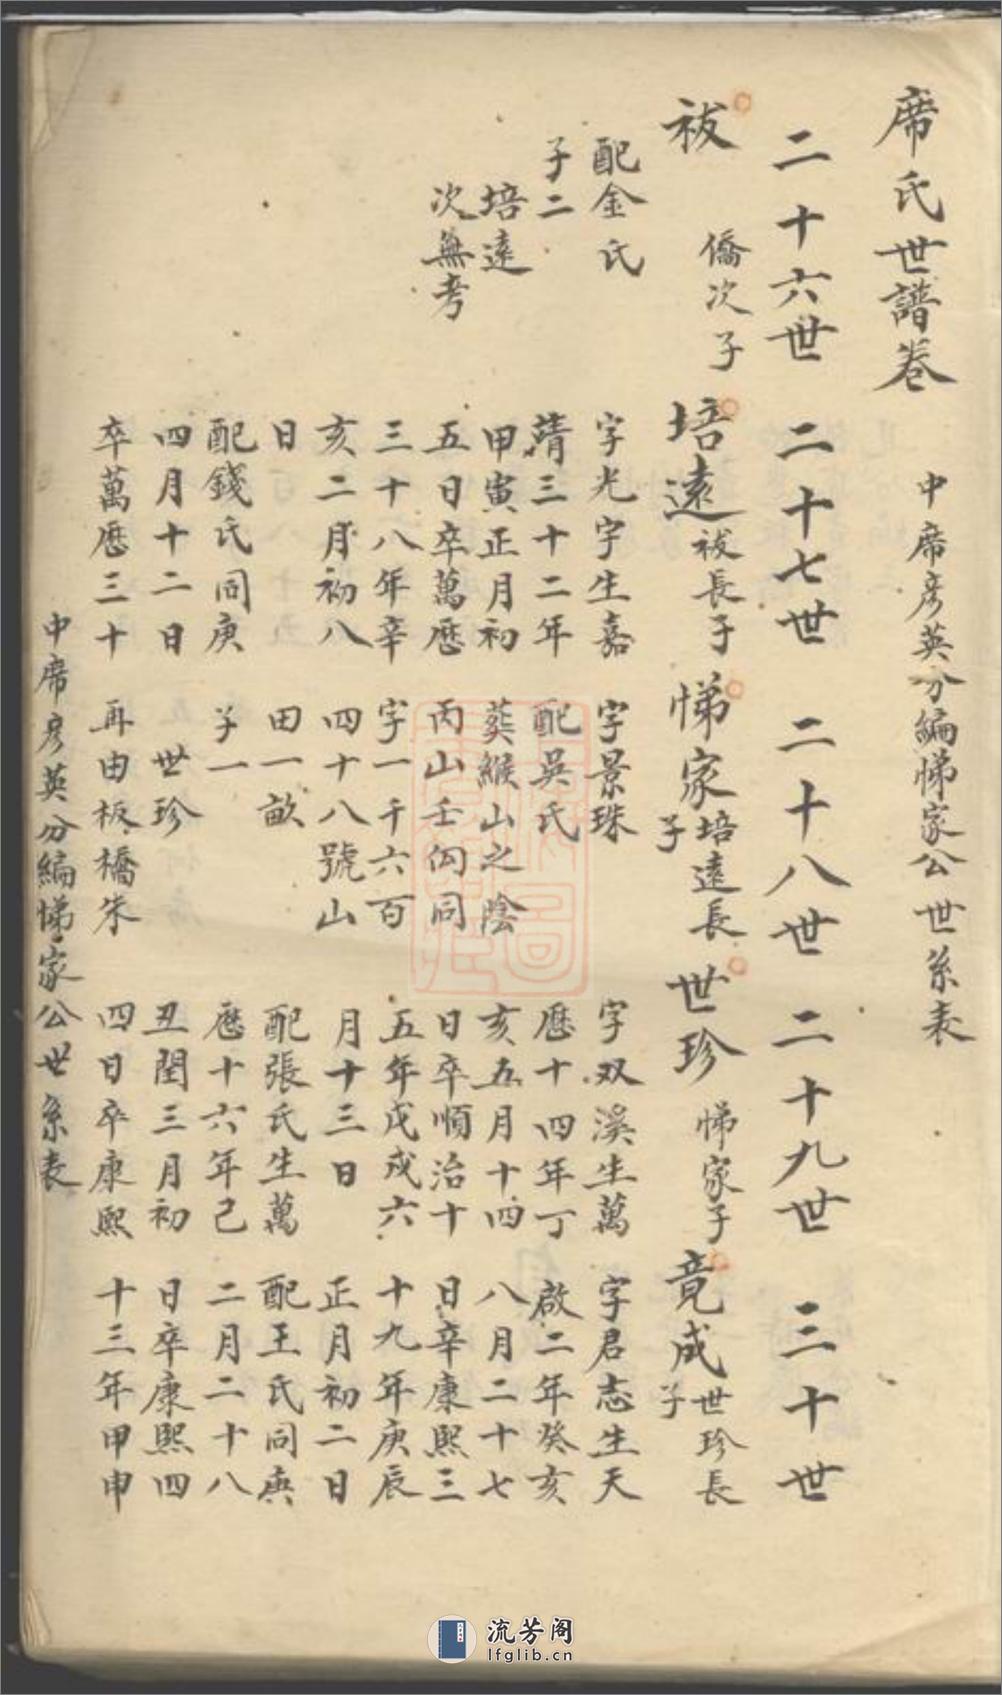 席氏世譜卷
中席彦英分編悌家公世系表
二十六世 二十七世 二十八世 二十九世 三十世
祓 僑次子
配金氏
子二
培遠
次無考
培遠 祓長子
字光宇生嘉
靖三十二年
甲寅正月初
五日卒萬厯
三十八年辛
亥二月初八
日
配錢氏同庚
四月十二日
卒萬厯三十
悌家 培遠長
子
字景珠
配吳氏
葬緱山之陰
丙山壬向同
字一千六百
四十八號山
田一畝
子一
世珍
再由板橋朱
世珍 悌家子
字双溪生萬
厯十四年丁
亥五月十四
日卒順治十
五年戊戌六
月十三日
配張氏生萬
厯十六年己
丑閏三月初
四日卒康熙
竟成 世珍長
子
字君志生天
啟二年癸亥
八月二十七
日辛康熙三
十九年庚辰
正月初二日
配王氏同庚
二月二十八
日卒康熙四
十三年甲申
中席彦英分編悌家公世系表
流芳阁
lfglib.cn